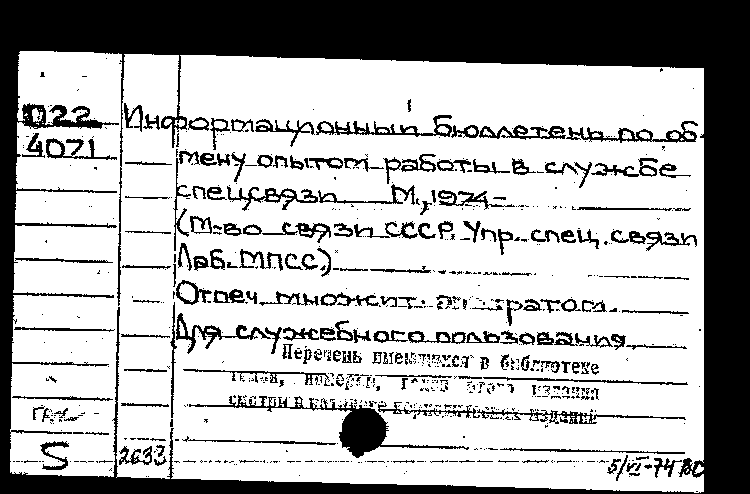 D22
4071
Информационный бюллетень по об-
мену опытом работы в службе
спецсвязи М., 1974-
(М-во связи СССР. Упр. спец. связи
Лаб. МПСС.)
Отпеч. множит. аппаратом.
Для служебного пользования.
Перечень имеющихся в библиотеке
томов, номеров, годов этого издания
смотри в каталоге периодических изданий
S
2633
5/VI-74 ВС